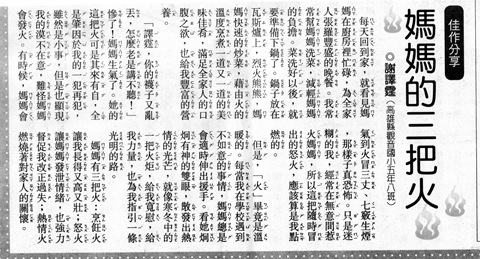 佳作分享
媽媽的三把火
◎謝譯霆（高雄縣觀音國小五年八班）
每天回到家，就看見媽
媽在廚房裡忙碌，為全家
人張羅豐盛的晚餐。我常
常幫媽媽洗菜，減輕媽媽
的負擔。菜洗好以後，就
要準備下鍋了。鍋子放在
瓦斯爐上，烈火熊熊，媽
媽快速的炒菜，藉由火的
溫度烹煮一道又一道的美
味佳餚，滿足全家人的口
腹之欲，也給我豐富的營
養。
「譯霆，你的襪子又亂
丟，怎麼老是講不聽！」
慘了！媽媽生氣了。她的
這把火可是其來有自，全
是肇因於我的一犯再犯，
雖然是小事，但是也顯現
我的漠不在意，難怪媽媽
會發火。有時候，媽媽會
氣到火冒三丈、七竅生煙
，那樣子真恐怖。只是迷
糊的我，經常在無意間惹
火媽媽，所以這把隨時冒
出的怒火，應該算是我點
燃的。
但是，「火」畢竟是溫
暖的。每當我在學校遇到
不如意的事情，媽媽總是
會適時伸出援手。看她炯
炯有神的雙眼，散發出熱
情的光芒，就像寒冬中的
一把火炬，給我寬慰，給
我力量，也為我指引一條
光明的路。
媽媽有三把火：烹飪火
讓我長得又高又壯；怒火
讓媽媽發泄情緒，也強力
督促我改正過失；熱情火
燃燒著對家人的關懷。